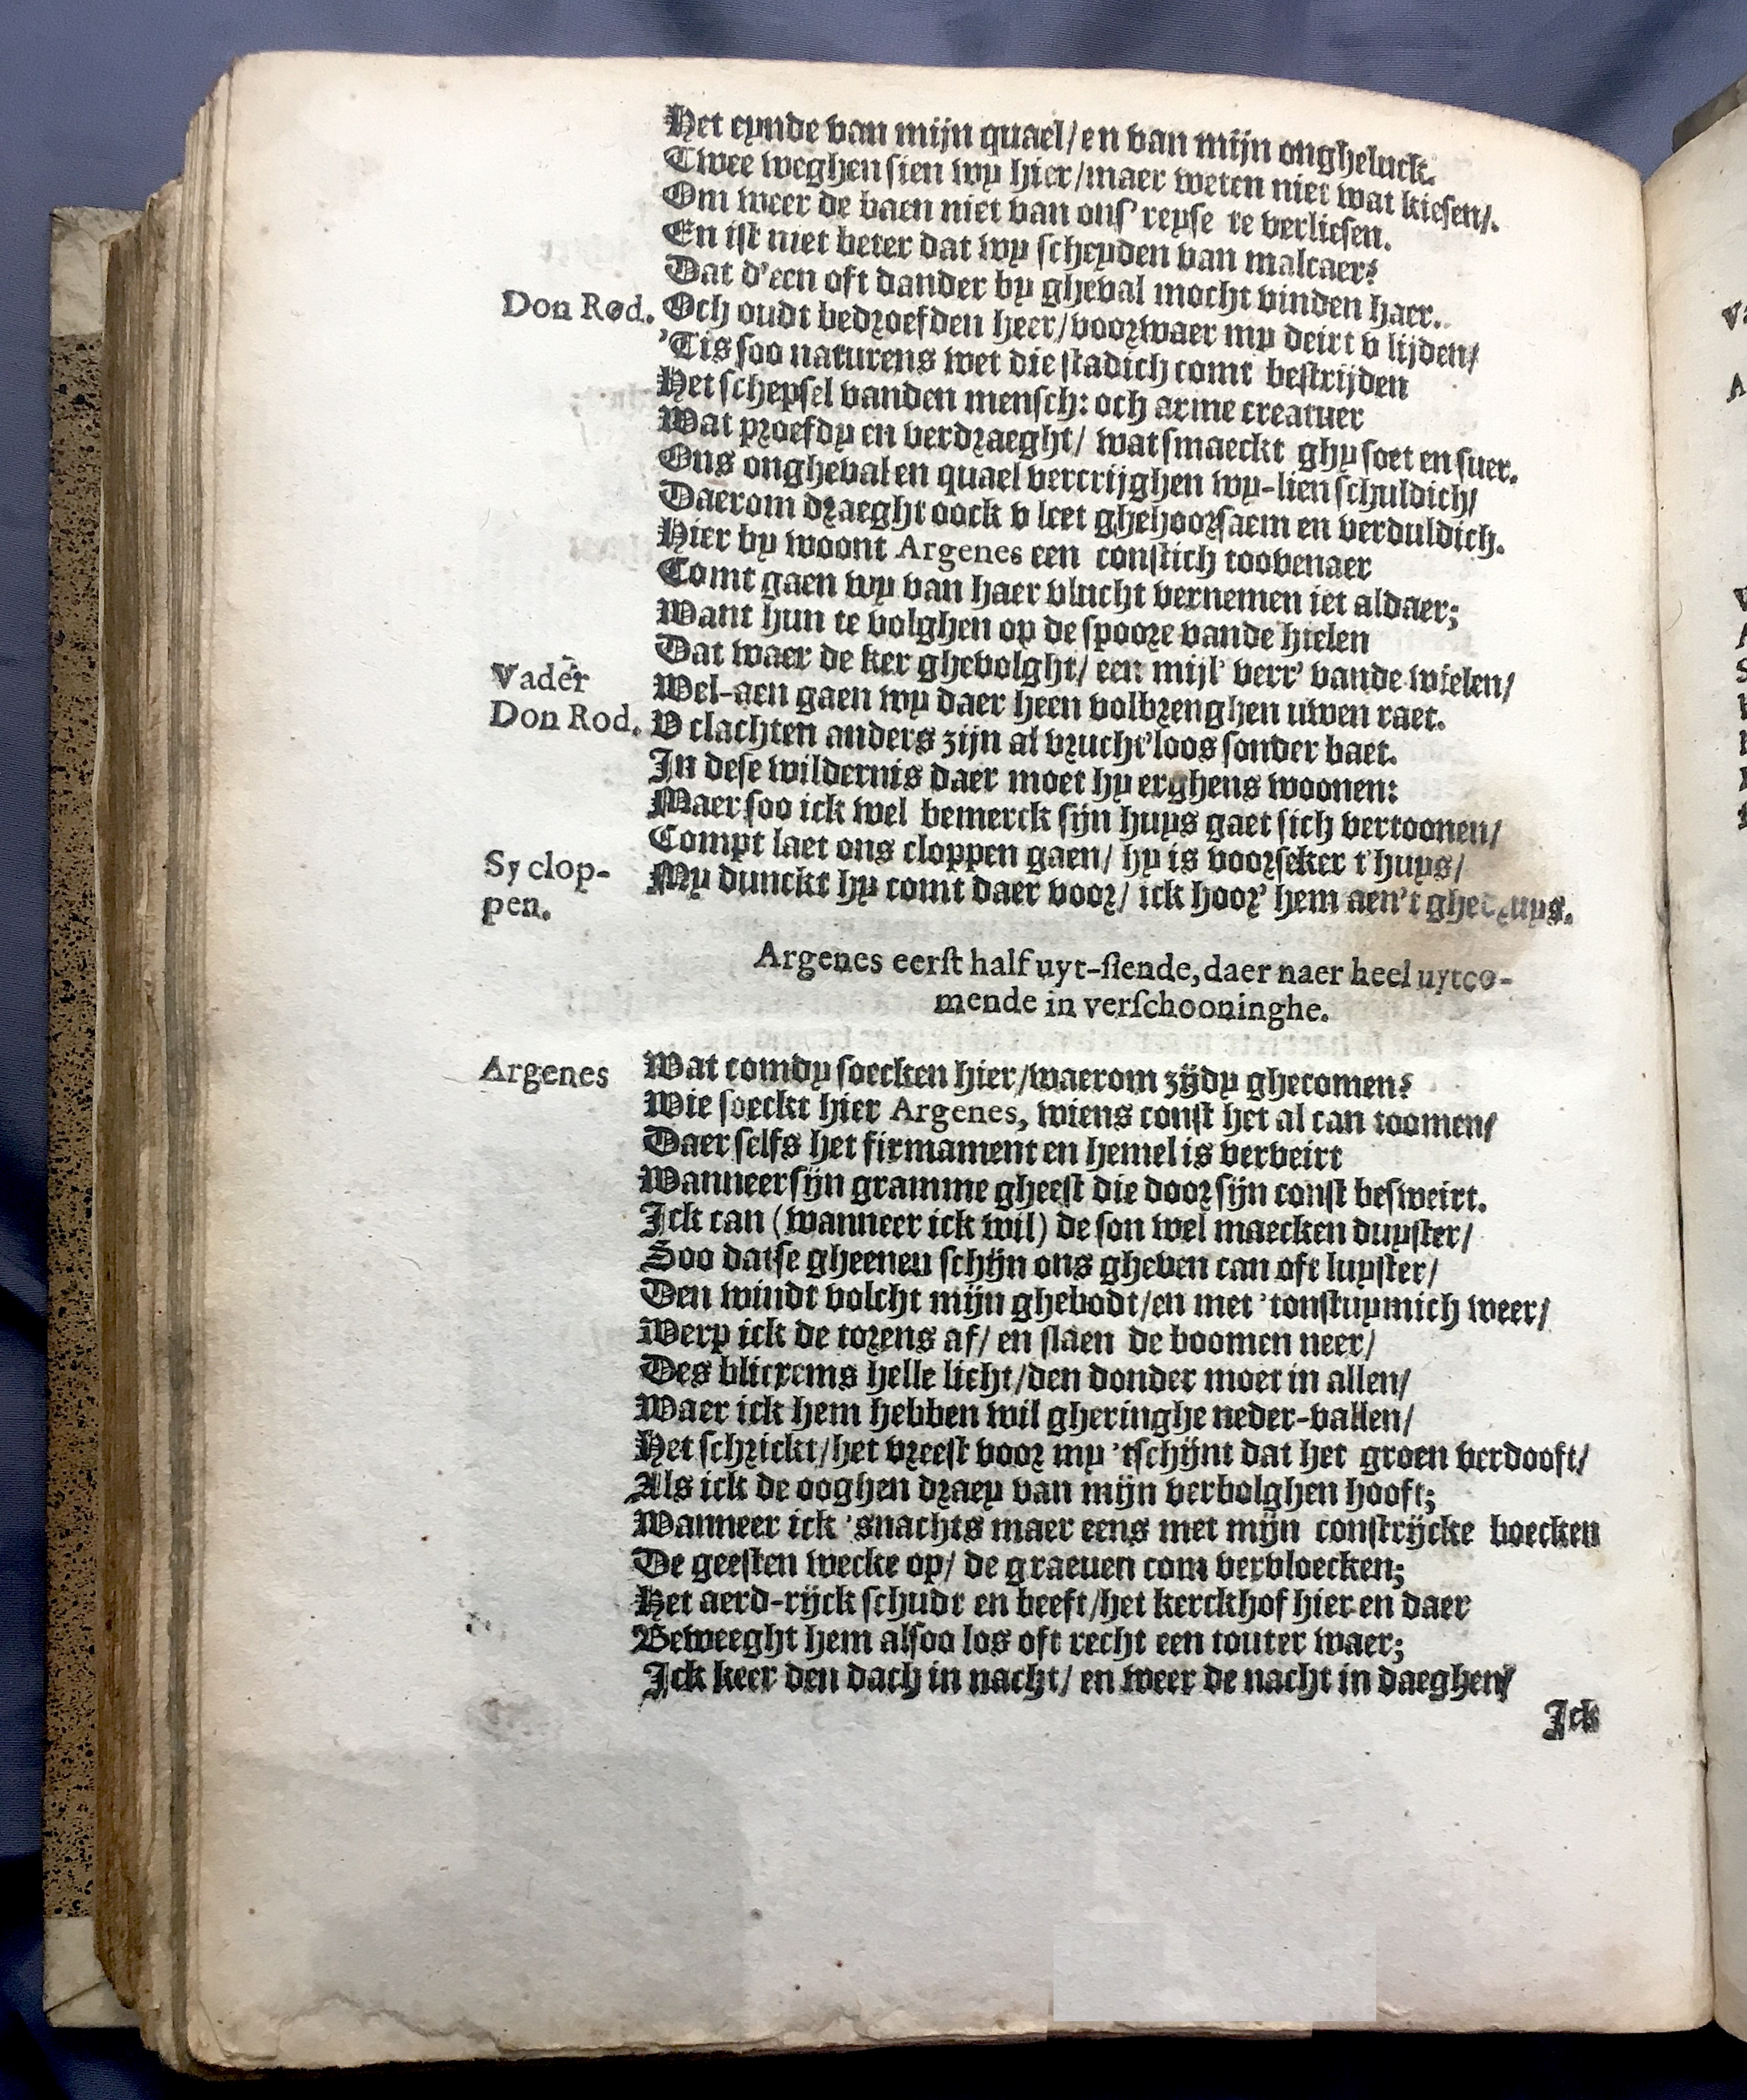 Het eynde van mijn quael/en van mijn ongheluck.
Twee weghen sien wy hier/maer weten niet wat kiesen/.
Om weer de baen niet van ons' reyse te verliesen.
En ist niet beter dat wy scheyden van malcaer?
Dat d'een oft dander by gheval mocht vinden haer.
Don Rod. Och oudt bedroefden heer/voorwaer my deirt v lijden/
'Tis soo naturens wet die stadich comt bestrijden
Het schepsel vanden mensch: och arme creatuer
Wat proefdy en verdraeght/ wat smaeckt ghy soet en suer.
Ons ongheval en quael vercrijghen wy-lien schuldich/
Daerom draeght oock v leet ghehoorsaem en verduldich.
Hier by woont Argenes een constich toovenaer
Comt gaen wy van haer vlucht vernemen iet aldaer;
Want hun te volghen op de spoore vande hielen
Dat waer de ker ghevolght/ een mijl' verr' vande wielen/
Vader Wel-aen gaen wy daer heen volbrenghen uwen raet.
Don Rod. V clachten anders zijn al vrucht'loos sonder baet.
In dese wildernis daer moet hy erghens woonen:
Maer soo ick wel bemerck sijn huys gaet sich vertoonen/
Compt laet ons cloppen gaen/ hy is voorseker t'huys/
Sy clop-
pen.
My dunckt hy comt daer voor/ ick hoor' hem aen't ghedruys.
Argenes eerst half uyt-siende, daer naer heel uytco-
mende in verschooninghe.
Argenes Wat comdy soecken hier/waerom zijdy ghecomen?
Wie soeckt hier Argenes, wiens const het al can toomen/
Daer selfs het firmament en hemel is verveirt
Wanneer sijn gramme gheest die door sijn const besweirt.
Ick can (wanneer ick wil) de son wel maecken duyster/
Soo datse gheenen schijn ons gheven can oft luyster/
Den windt volcht mijn ghebodt/en met 'tonstuymich weer/
Werp ick de torens af/ en slaen de boomen neer/
Des blicxems helle licht/den donder moet in allen/
Waer ick hem hebben wil gheringhe neder-vallen/
Het schrickt/het vreest voor my 'tschijnt dat het groen verdooft/
Als ick de ooghen draey van mijn verbolghen hooft;
Wanneer ick 'snachts maer eens met mijn constrijcke boecken
De geesten wecke op/ de graeuen com vervloecken;
Het aerd-rijck schudt en beeft/het kerckhof hier en daer
Beweeght hem alsoo los oft recht een touter waer;
Ick keer den dach in nacht/ en weer de nacht in daeghen/
Ick